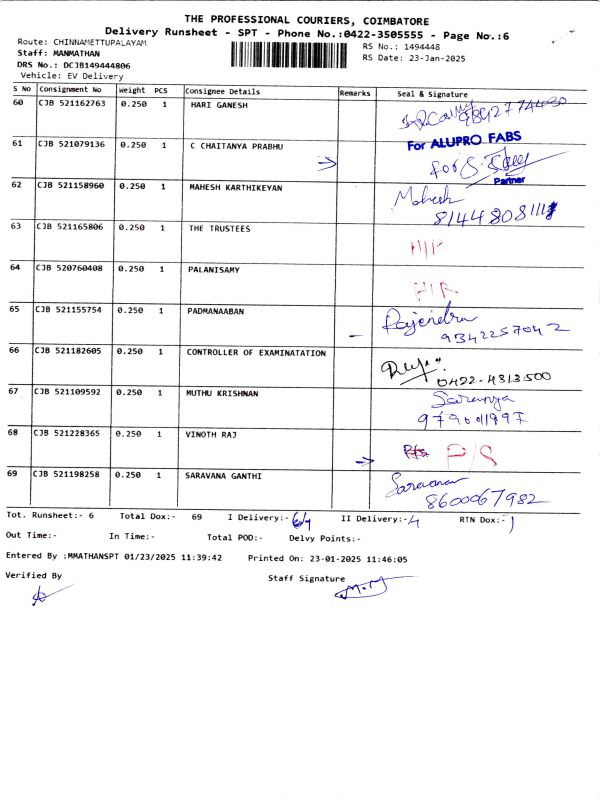 THE PROFESSIONAL COURIERS, COIMBATORE
Delivery Runsheet - SPT - Phone No.:0422-3505555 - Page No.:6
Route: CHINNAMETTUPALAYAM
Staff: MANMATHAN
DRS No.: DCJB149444806
Vehicle: EV Delivery
RS No.: 1494448
RS Date: 23-Jan-2025
S No Consignment No Weight PCS Consignee Details Remarks Seal & Signature
60 CJB 521162763 0.250 1 HARI GANESH
61 CJB 521079136 0.250 1 C CHAITANYA PRABHU For ALUPRO FABS
For S.
Partner
62 CJB 521158960 0.250 1 MAHESH KARTHIKEYAN Mahesh
63 CJB 521165806 0.250 1 THE TRUSTEES
64 CJB 520760408 0.250 1 PALANISAMY
65 CJB 521155754 0.250 1 PADMANAABAN Rajendra
9342257042
66 CJB 521182605 0.250 1 CONTROLLER OF EXAMINATATION
0422-4313500
67 CJB 521109592 0.250 1 MUTHU KRISHNAN Saranya
68 CJB 521228365 0.250 1 VINOTH RAJ P/S
69 CJB 521198258 0.250 1 SARAVANA GANTHI Saravanan
8600067982
Tot. Runsheet:- 6 Total Dox:- 69 I Delivery:- II Delivery:-4 RTN Dox:-1
Out Time:- In Time:- Total POD:- Delvy Points:-
Entered By :MMATHANSPT 01/23/2025 11:39:42 Printed On: 23-01-2025 11:46:05
Verified By Staff Signature
M.M